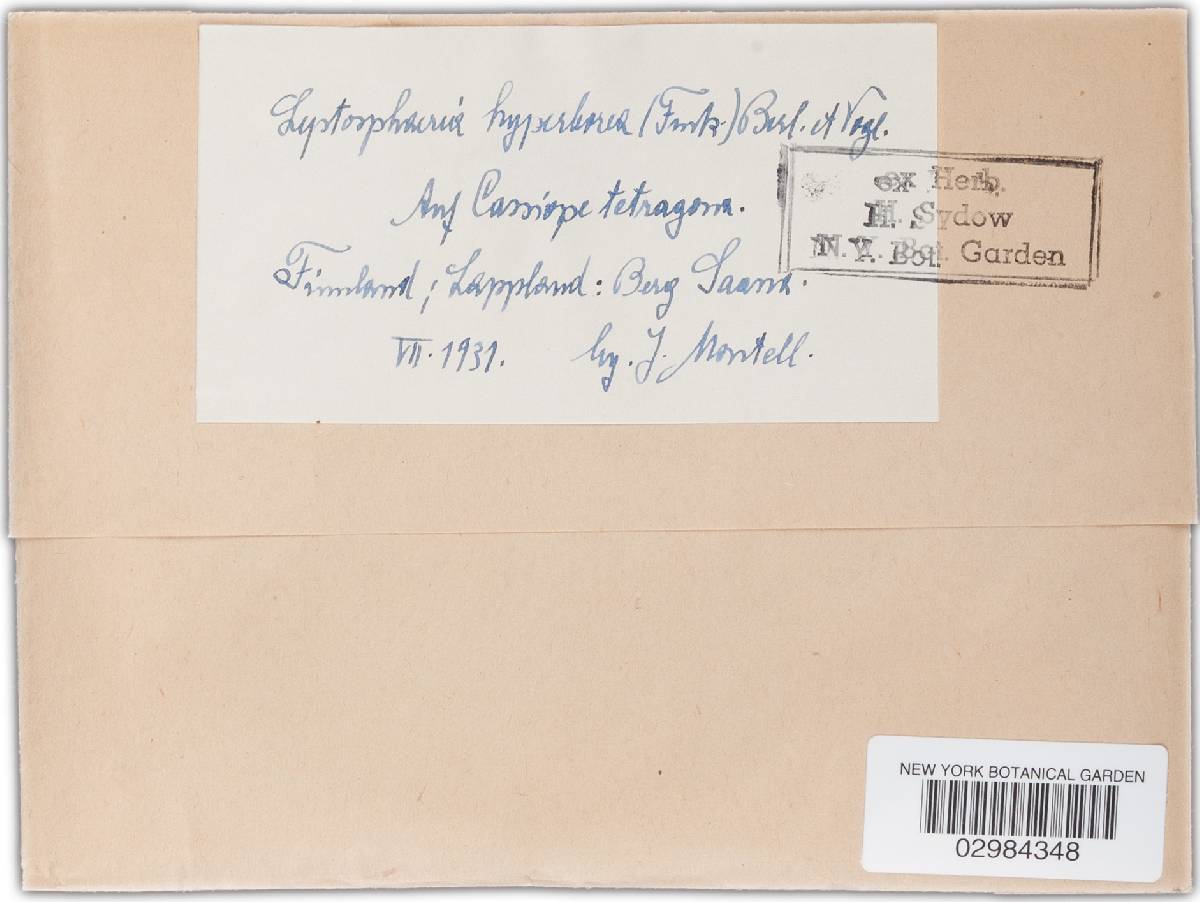 Leptosphaeria hyperborea (Fuck.) Berl. et Vogl.
Auf Cassiope tetragona.
Finnland; Lappland: Berg Saana.
VII. 1931. leg. J. Montell.
ex Herb.
H. Sydow
N. Y. Bot. Garden
NEW YORK BOTANICAL GARDEN
02984348